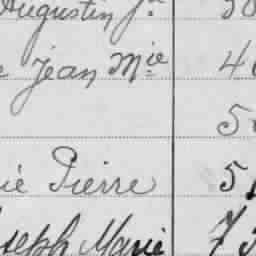 Augustin Jn
Jean Mie 4
5
ie Pierre 5
seph Marie 73